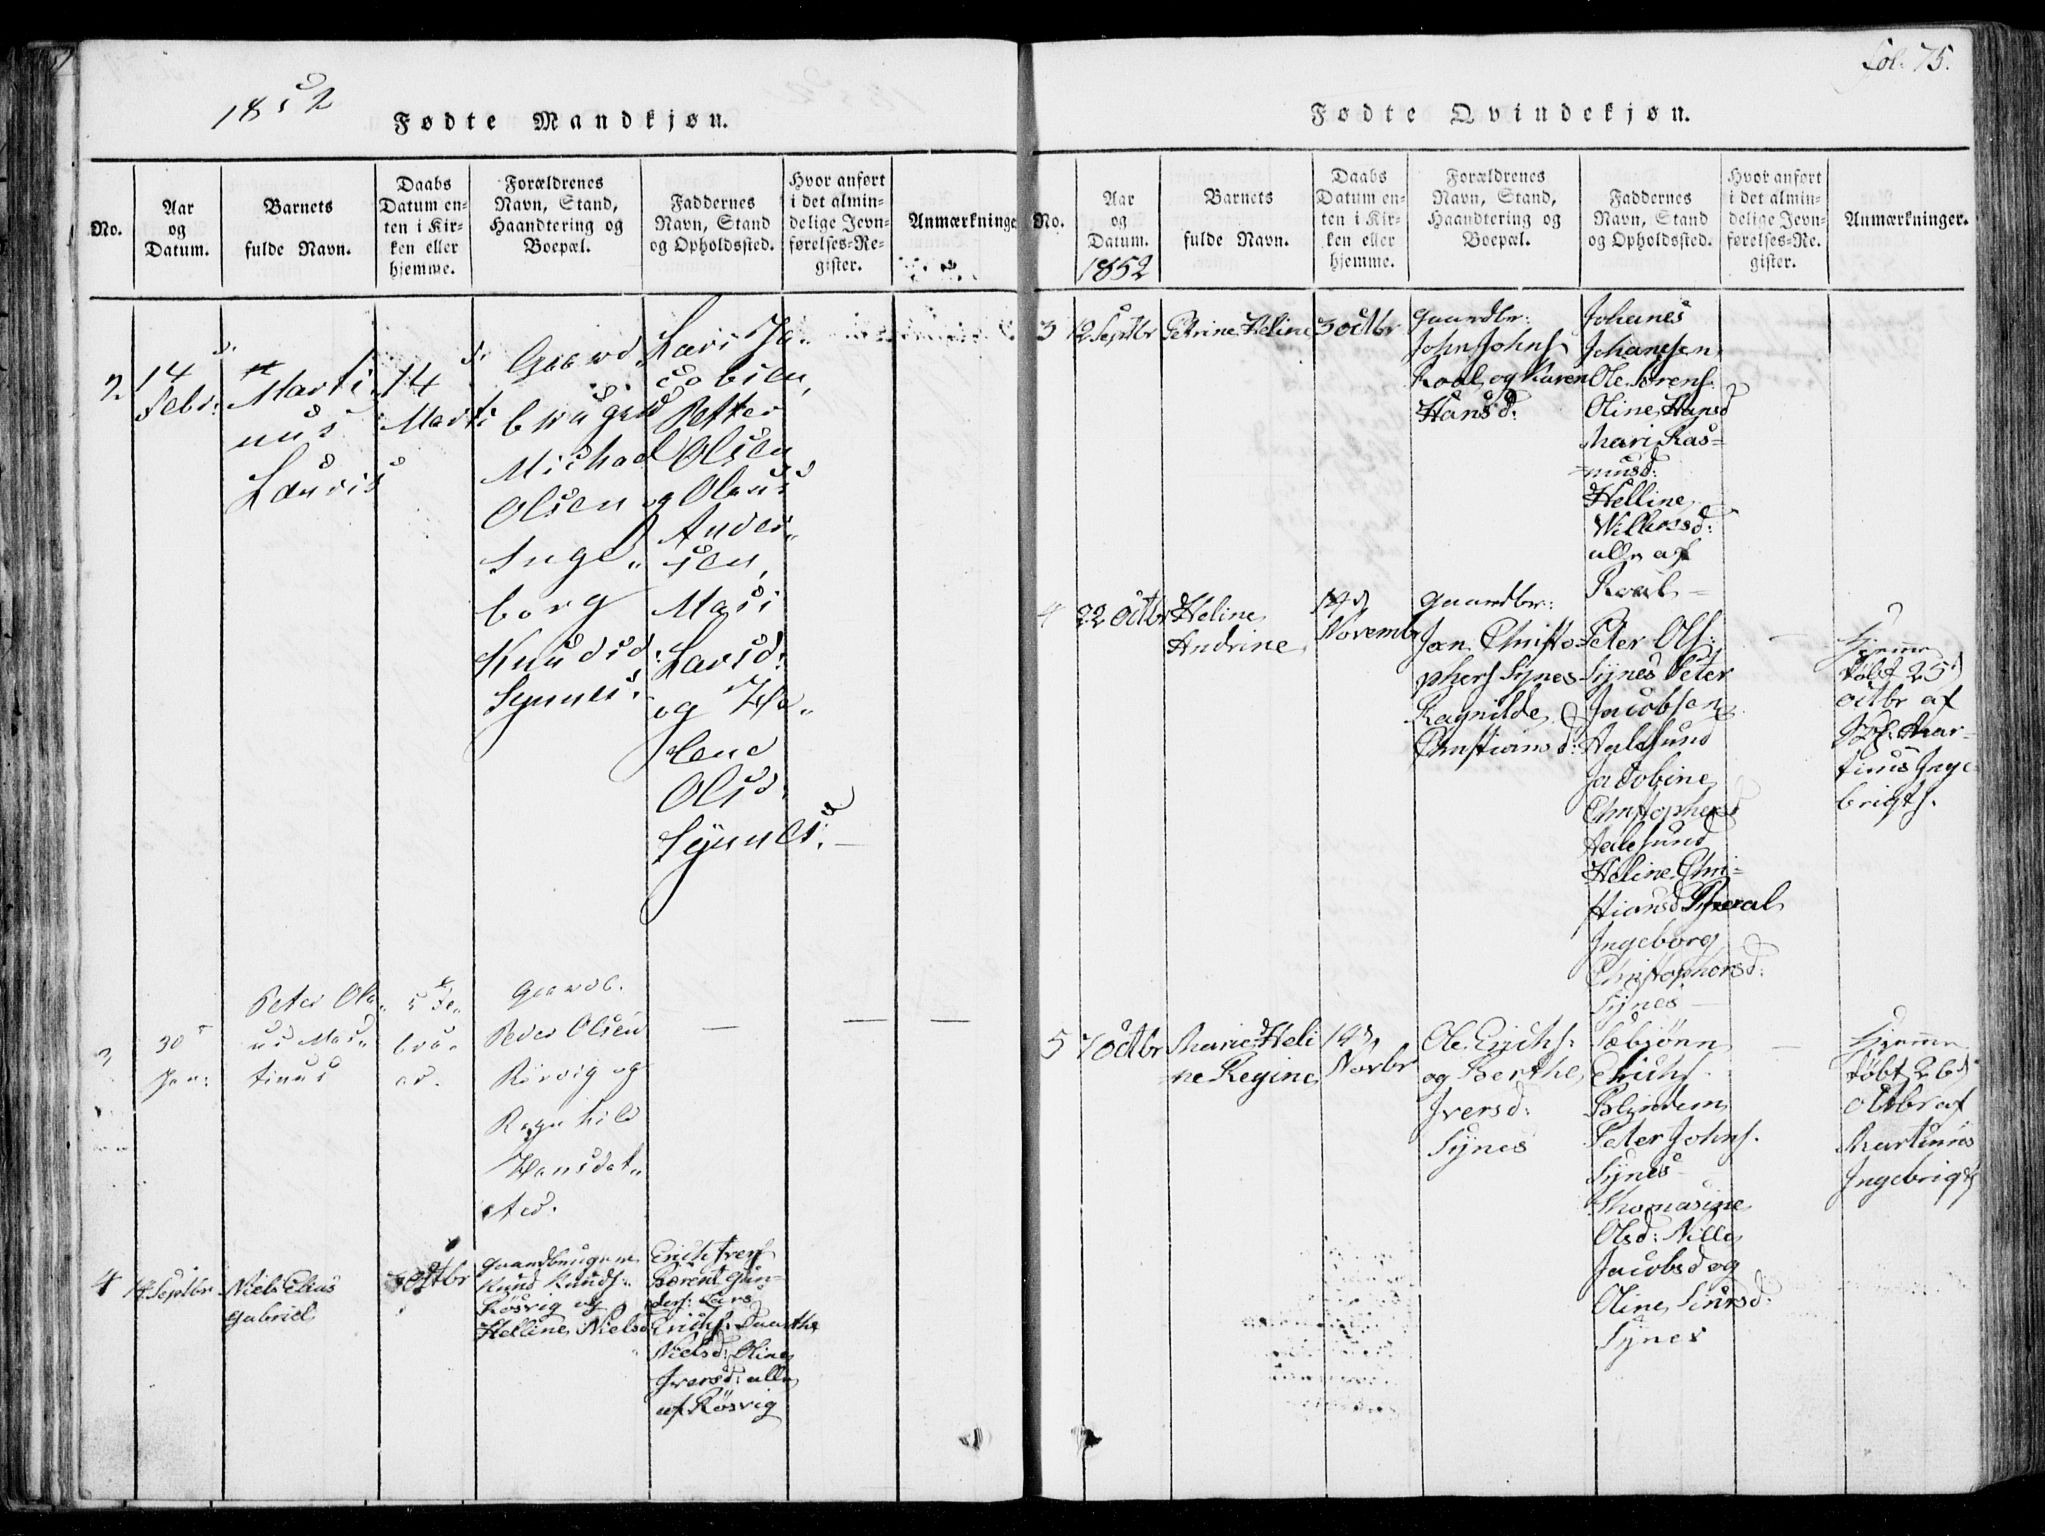 1852
Fødte Mandkjøn.
No.
Aar
og
Datum.
Barnets
fulde Navn.
Daabs
Datum en-
ten i Kir-
ken eller
hjemme.
Forældrenes
Navn, Stand,
Haandtering og
Boepæl.
Faddernes
Navn, Stand
og Opholdssted.
Hvor anført
i det almin-
delige Jevn-
førelses-Re-
gister.
Anmærkninge
2
14
Febr:
Marti
nus
Lauris
14
Marts
Gaard
bruger
Michael
Olsen og
Inge"
borg
Knudsd:
Synnes.
Lars Ja"
cobsen,
Petter
Olsen
Olaus
Ander"
sen,
Mari
Larsd:
og He"
lene
Olsd:
Synnes.
3
30
Jan:
Peter Ola"
us Mar"
tinus
5 Fe"
brua"
ar.
Gaardb.
Peder Olsen
Rörvig og
Ragnhild
Hansdat"
ter.
4
14 Septbr
Niels Elias
Gabriel
3 Octbr
Gaardbrugere
Knud Knuds:
Rösvig og
Helline Nielsd:
Erich Ivers
Berent Gun-
ders: Lars
Erichs:
Nielsd: Oline
Iversd: alle
af Rösvig
fol: 75.
Fødte Qvindekjøn.
No.
Aar
og
Datum.
1852
Barnets
fulde Navn.
Daabs
Datum en-
ten i Kir-
ken eller
hjemme.
Forældrenes
Navn, Stand,
Haandtering og
Boepæl.
Faddernes
Navn, Stand
og Opholdssted.
Hvor anført
i det almin-
delige Jevn-
førelses-Re-
gister.
Anmærkninger.
3
12 Septbr
Petrine Heline
3 Octbr
Gaardbr:
John Johns
Roal og Karen
Hansd:
Johanes
Johansen
Ole Sörens.
Oline Hansd
Mari Ras=
musd:
Helline
Willumsd:
alle af
Roal
4
22 Octbr
Heline
Andrine
14d
Novembr
Gaardbr:
Jon Christo=
phers Synes
Ragnilde
Christiansd:
Peter Ols:
Synes Peter
Jacobsen
Aalesund
Jacobine
Christophersd
Aalesund
Heline Chri=
stiansd
Ingeborg
Christophersd:
Synes
Hjemme
döbt 25d
Octbr af
Mar=
tinus Inge=
brigts.
5
7 Octbr
Marie Heli
ne Regine
14d
Novbr
Ole Erichs:
og Berthe
Iversd:
Synes
Sæbjönn
Erichs.
Blindem
Peter Johns.
Synes
Thomasine
Olsd: Nille
Jacobsd og
Oline Siursd:
Synes
Hjemme
döbt 26d
Octbr af
Martinus
Ingebrigts